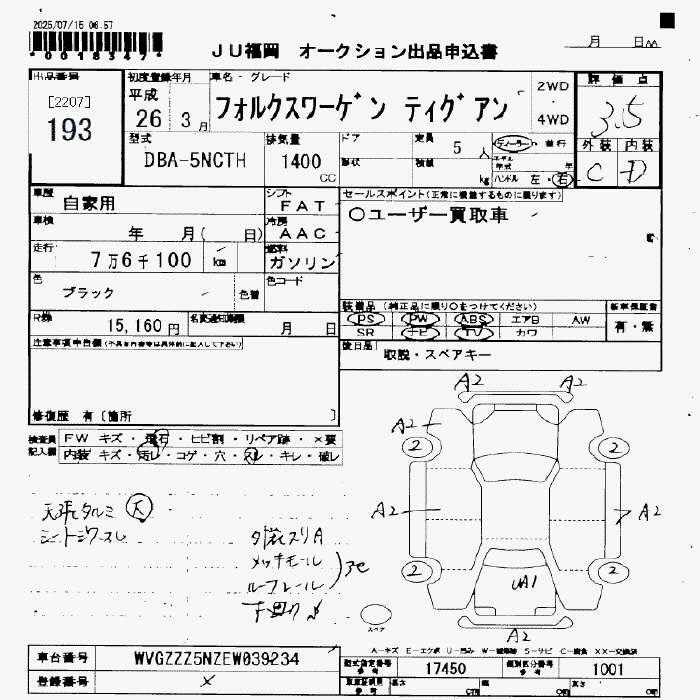 2025/07/15 06.57
*0018347*
JU福岡 オークション出品申込書
月 日
出品番号
[2207]
193
初度登録年月
平成
26 3月
車名・グレード
フォルクスワーゲン ティグアン
2WD
4WD
評価点
3.5
外装 内装
C D
型式
DBA-5NCTH
排気量
1400
CC
ドア
形状
定員 5人
積載 kg
ディーラー・並行
モデル年式 年
ハンドル 左・右
車歴
自家用
シフト
FAT
セールスポイント(正常に機能するものに限ります)
○ユーザー買取車
車検
年 月( 日)
冷房
AAC
走行
7万6千100 km
燃料
ガソリン
色
ブラック
色替
色コード
R券
15,160円
名変通知期限
月 日
装備品(純正品に限り○をつけてください)
PS PW ABS エアB AW
SR ナビ TV カワ
新車保証書
有・無
後日品
取説・スペアキー
注意事項申告欄(不具合内容等は具体的に記入して下さい)
修復歴 有〔箇所 〕
検査員記入欄
FW キズ・飛石・ヒビ割・リペア跡・×要
内装 キズ・汚レ・コゲ・穴・スレ・キレ・破レ
天張タルミ 大
シートシワスレ
外装スリA
メッキモール
ルーフレール
下回り
A2 A2
A2
2 2
A2 A2
2 2
UA1
A2
スペア
A-キズ E-エクボ U-凹み W-補修跡 S-サビ C-腐食 XX-交換済
車台番号
WVGZZZ5NZEW039234
登録番号
×
型式指定番号
参考
17450
類別区分番号
参考
1001
車庫証明用
参考
長さ cm
幅 cm
高さ cm